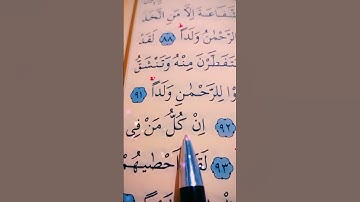 لشَّفَاعَةَ إِلَّا مَنِ اتَّخَذَ
الرَّحْمَٰنُ وَلَدًا ۝٨٨ لَقَدْ
يَتَفَطَّرْنَ مِنْهُ وَتَنْشَقُّ
وْا لِلرَّحْمَٰنِ وَلَدًا ۝٩١
۝٩٢ اِنْ كُلُّ مَنْ فِى
۝٩٣ لَقَدْ اَحْصٰىهُمْ